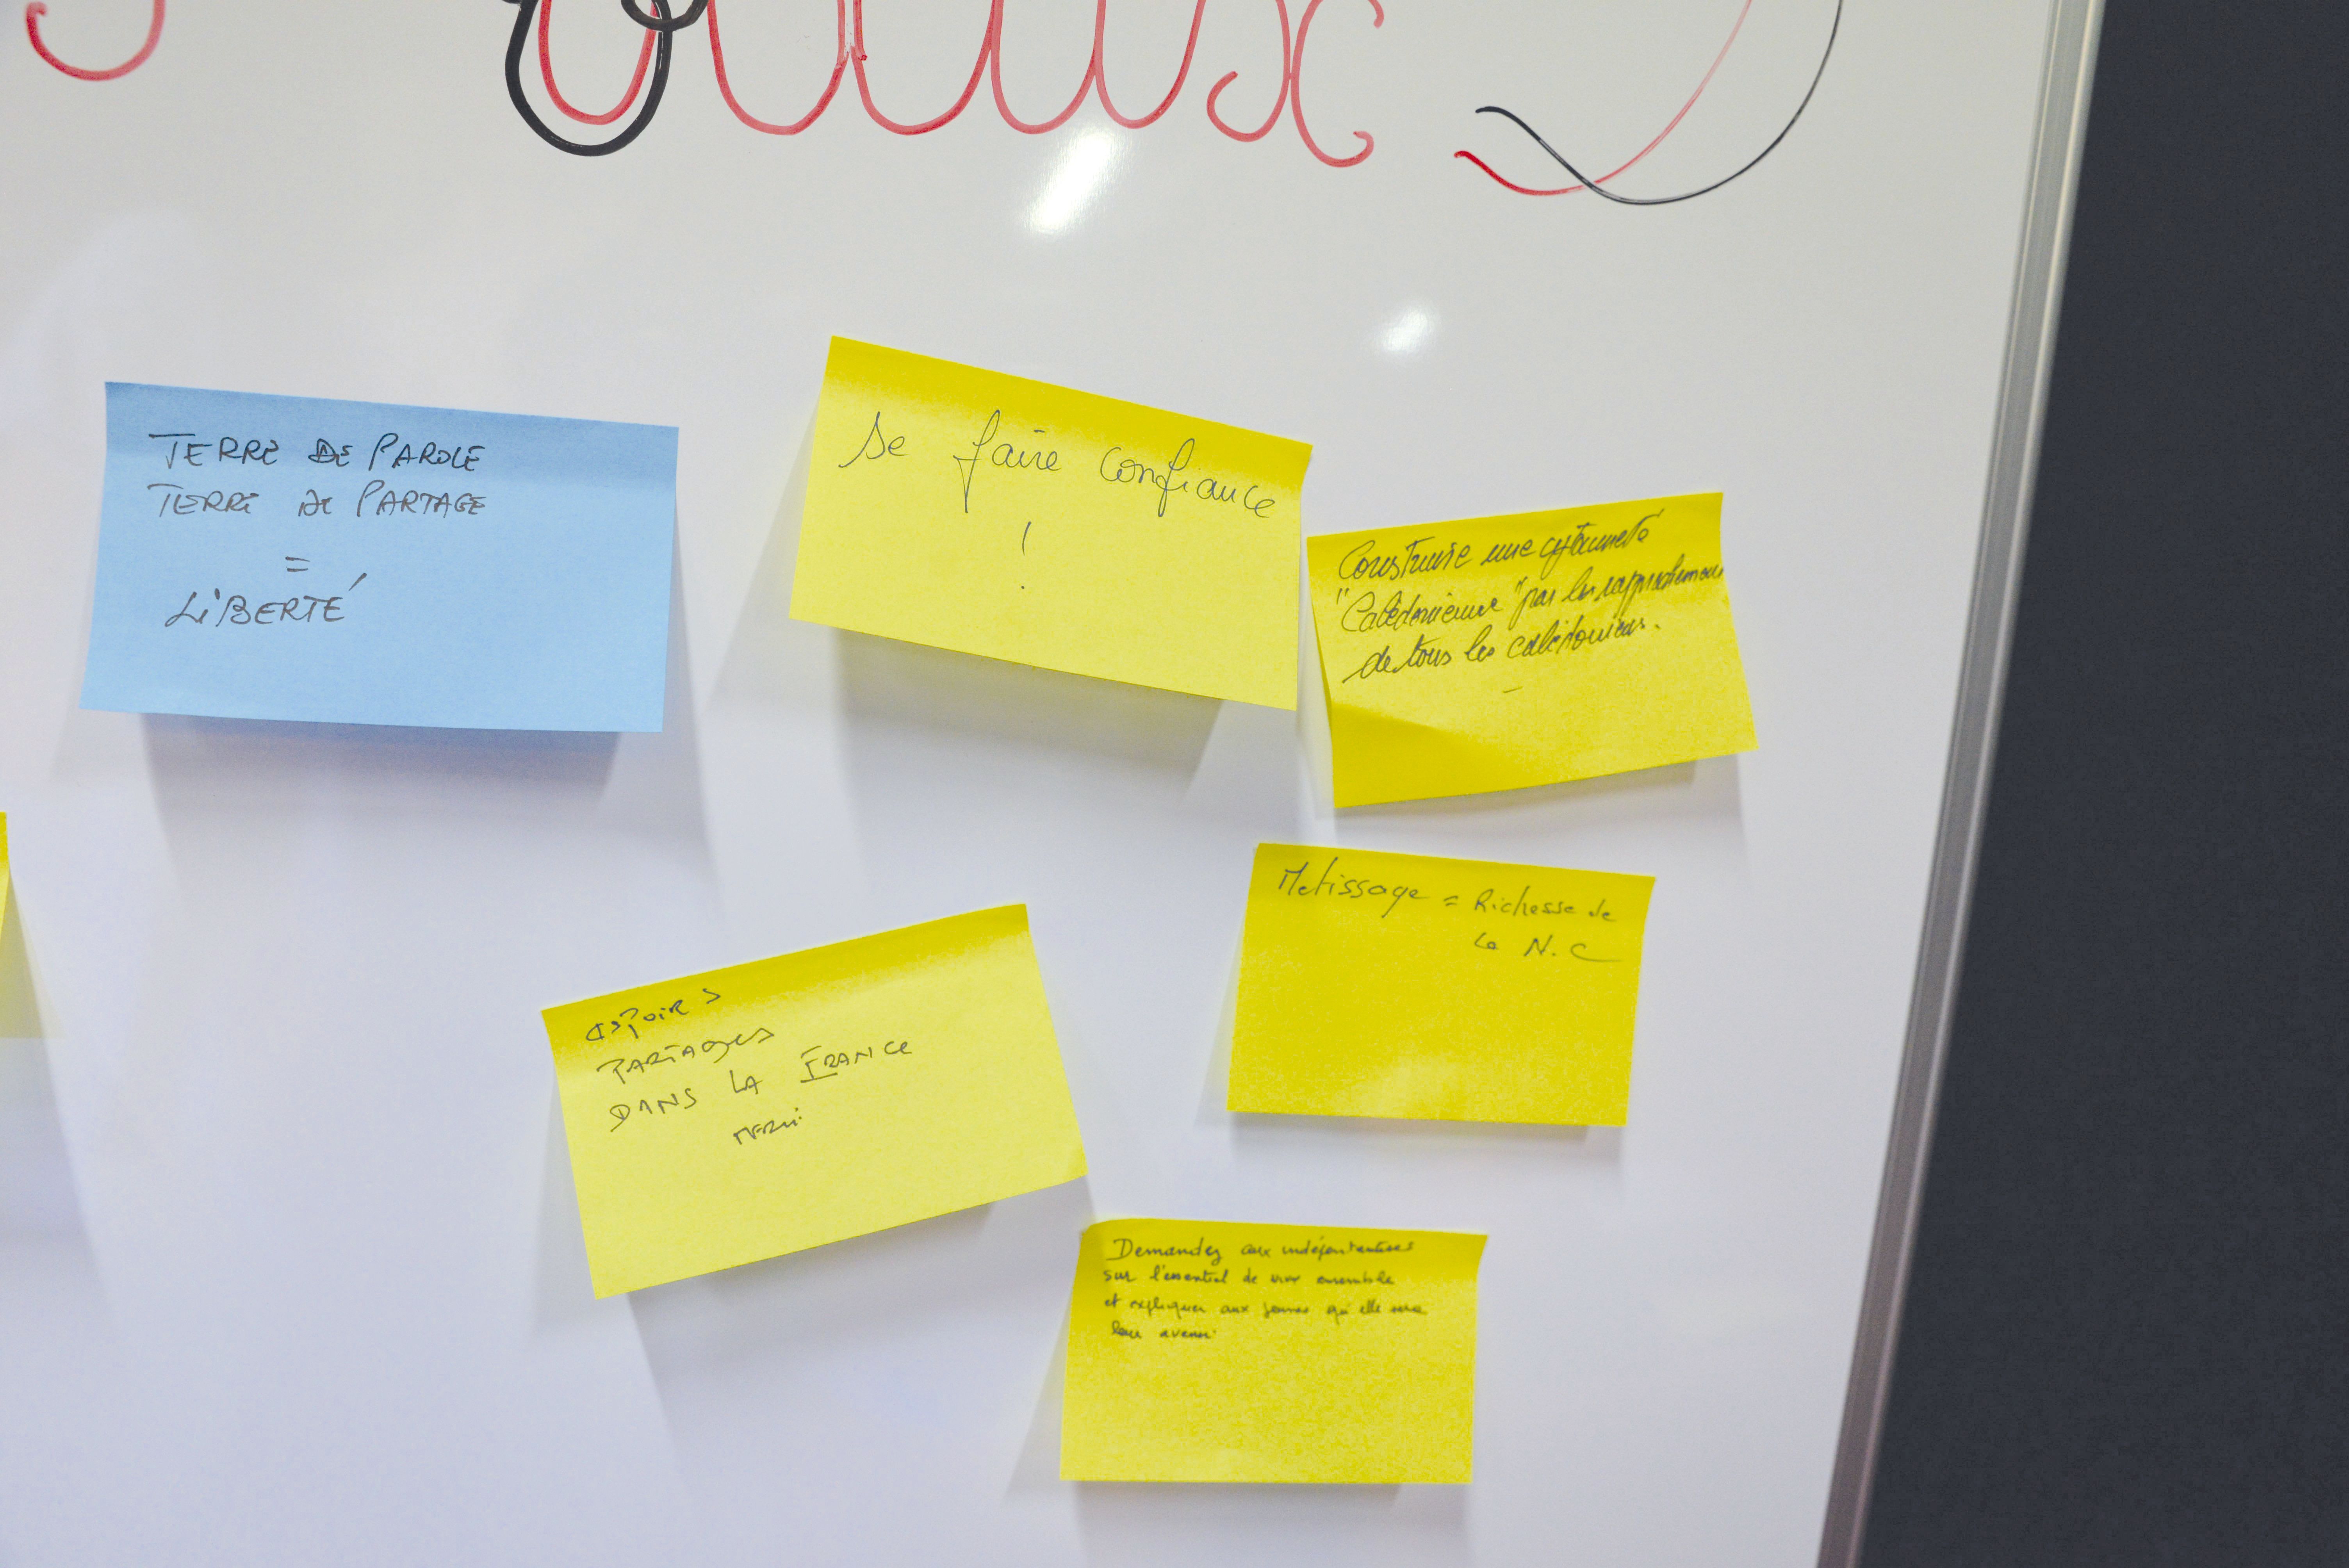 TERRE DE PAROLE
TERRE DE PARTAGE
=
LIBERTÉ
se faire confiance
!
Construire une cytoyenneté
"Calédonienne" par les rapprochements
de tous les calédoniens.
Metissage = Richesse de
la N.C
ESPOIRS
PARTAGES
DANS LA FRANCE
MERCI
Demandez aux indépendantistes
sur l'essentiel de vivre ensemble
et expliquer aux jeunes qu'elle sera
leur avenir